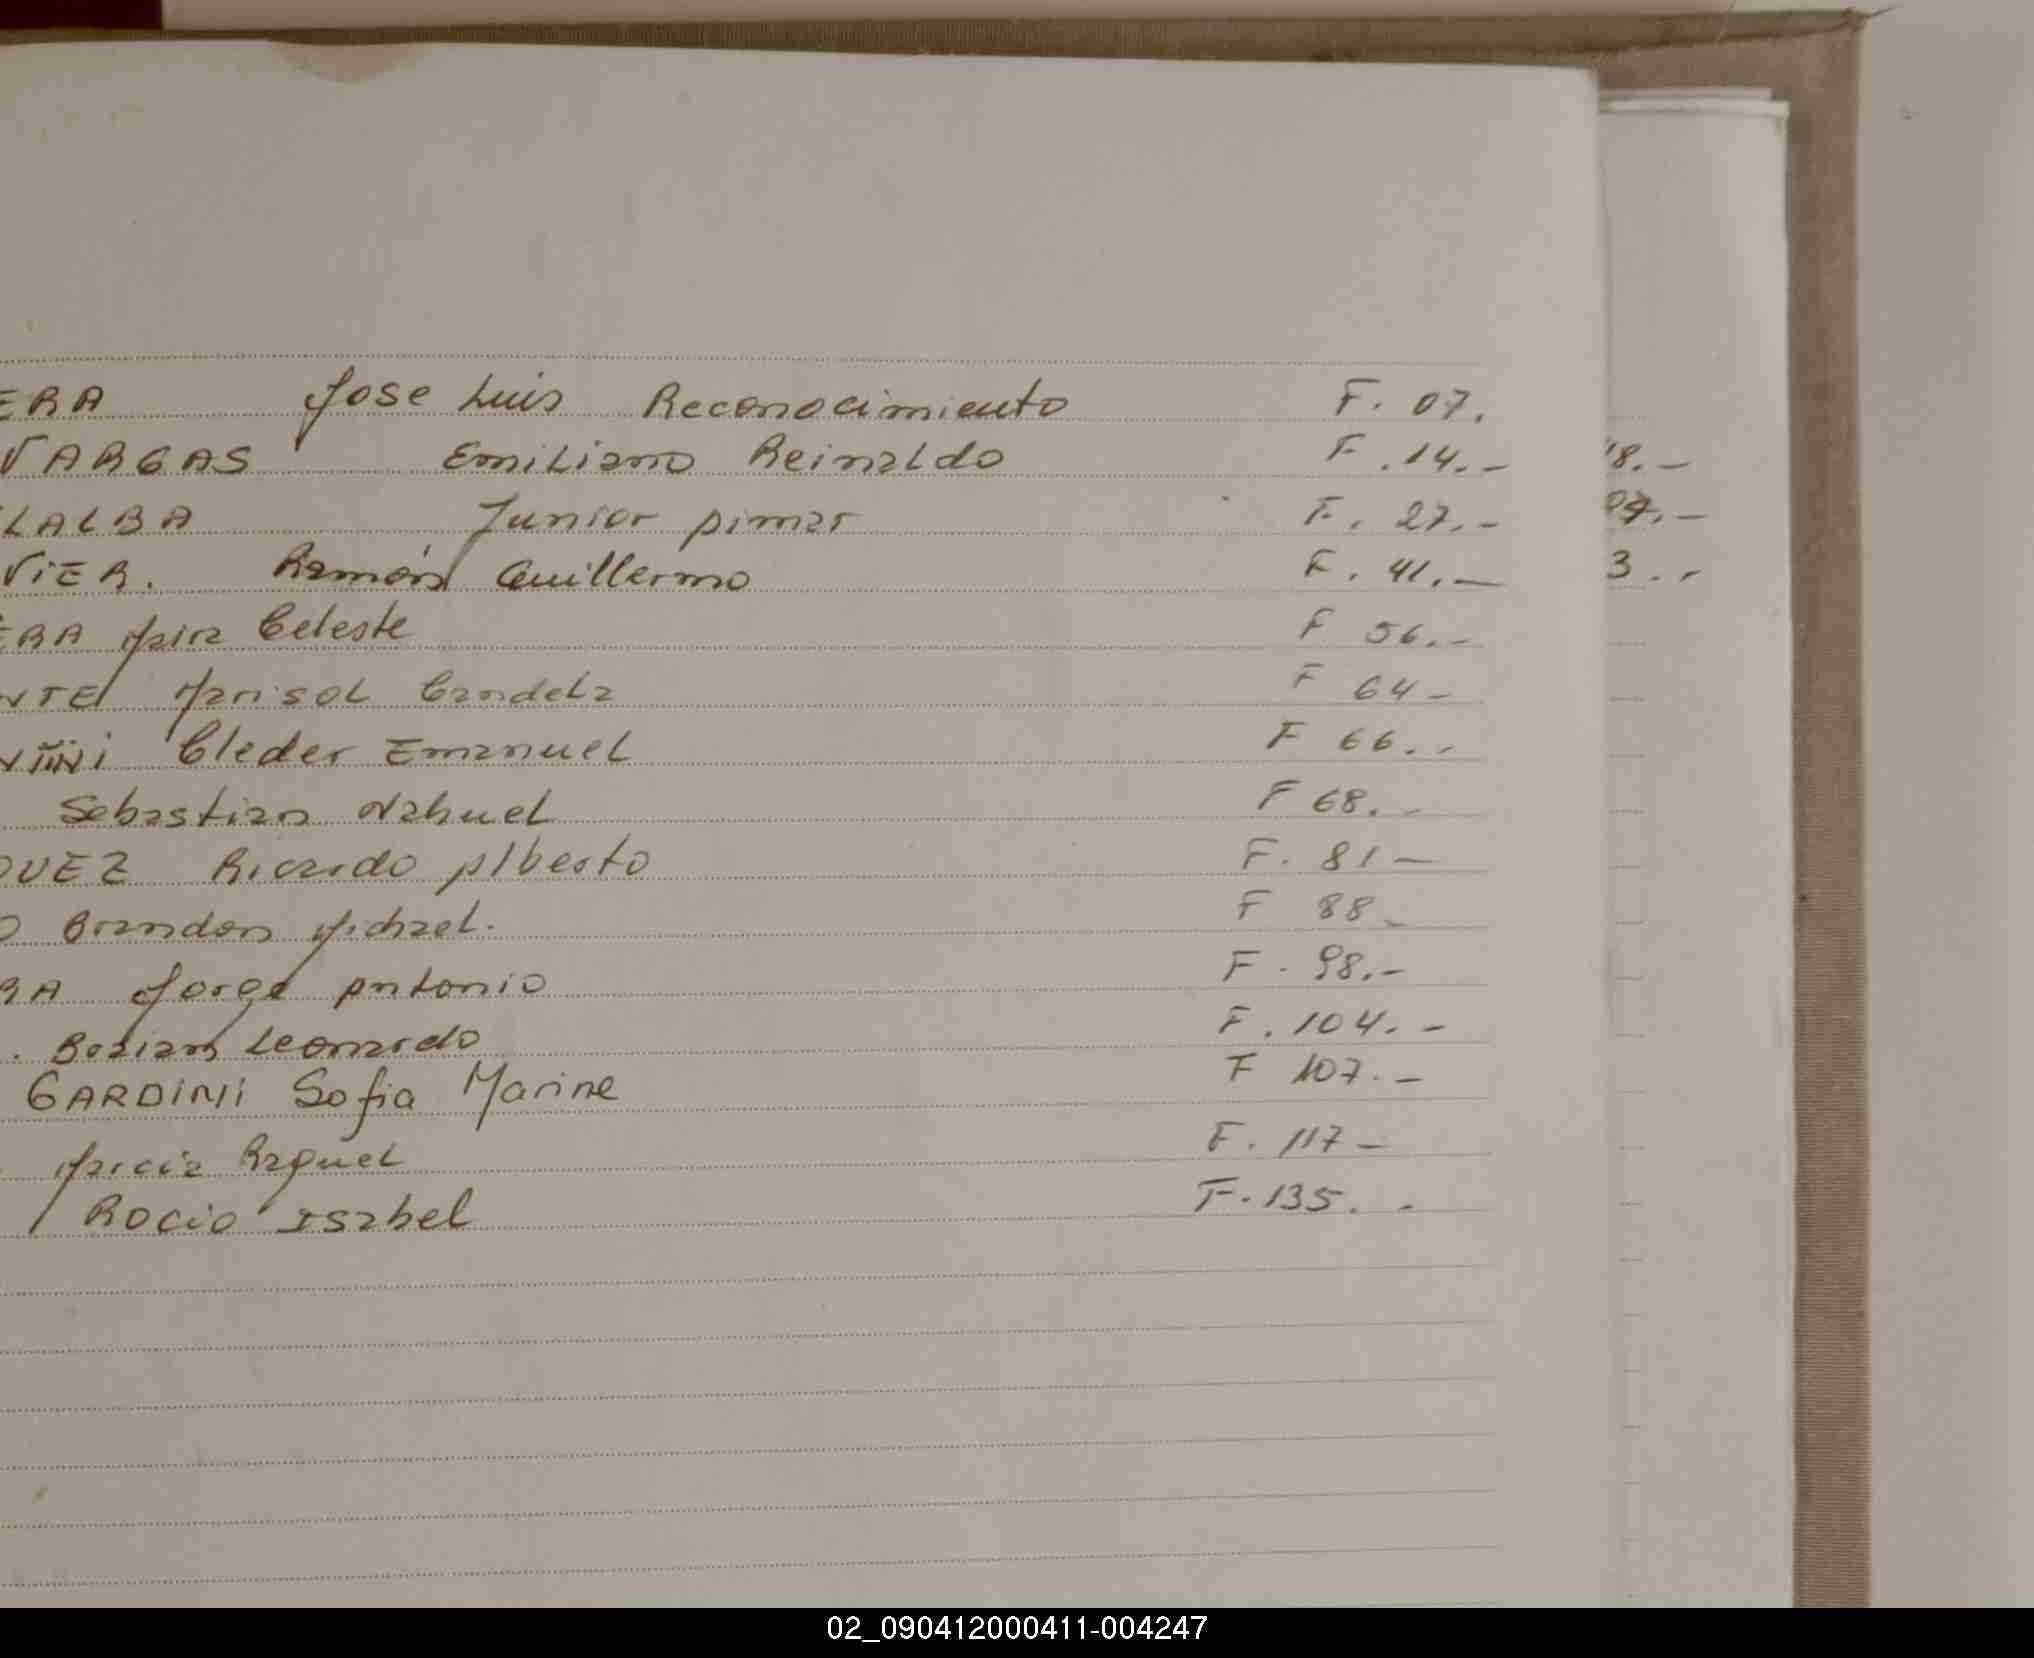 ERA Jose Luis Reconocimiento F. 07.
VARGAS Emiliano Reinaldo F. 14.-
LALBA Junior Aimar F. 27.-
VIER. Ramón Guillermo F. 41.-
ERA Celeste F 56.-
NTE Marisol Candela F 64-
Cleder Emanuel F 66.-
Sebastian Nahuel F 68.-
QUEZ Ricardo Alberto F. 81-
O Brandon Michael. F 88-
RA Jorge Antonio F. 98.-
Leonardo F. 104.-
GARDINI Sofia Marine F 107.-
Marcia Raquel F. 117-
Rocio Isabel F. 135.-
18.-
3.-
02_090412000411-004247